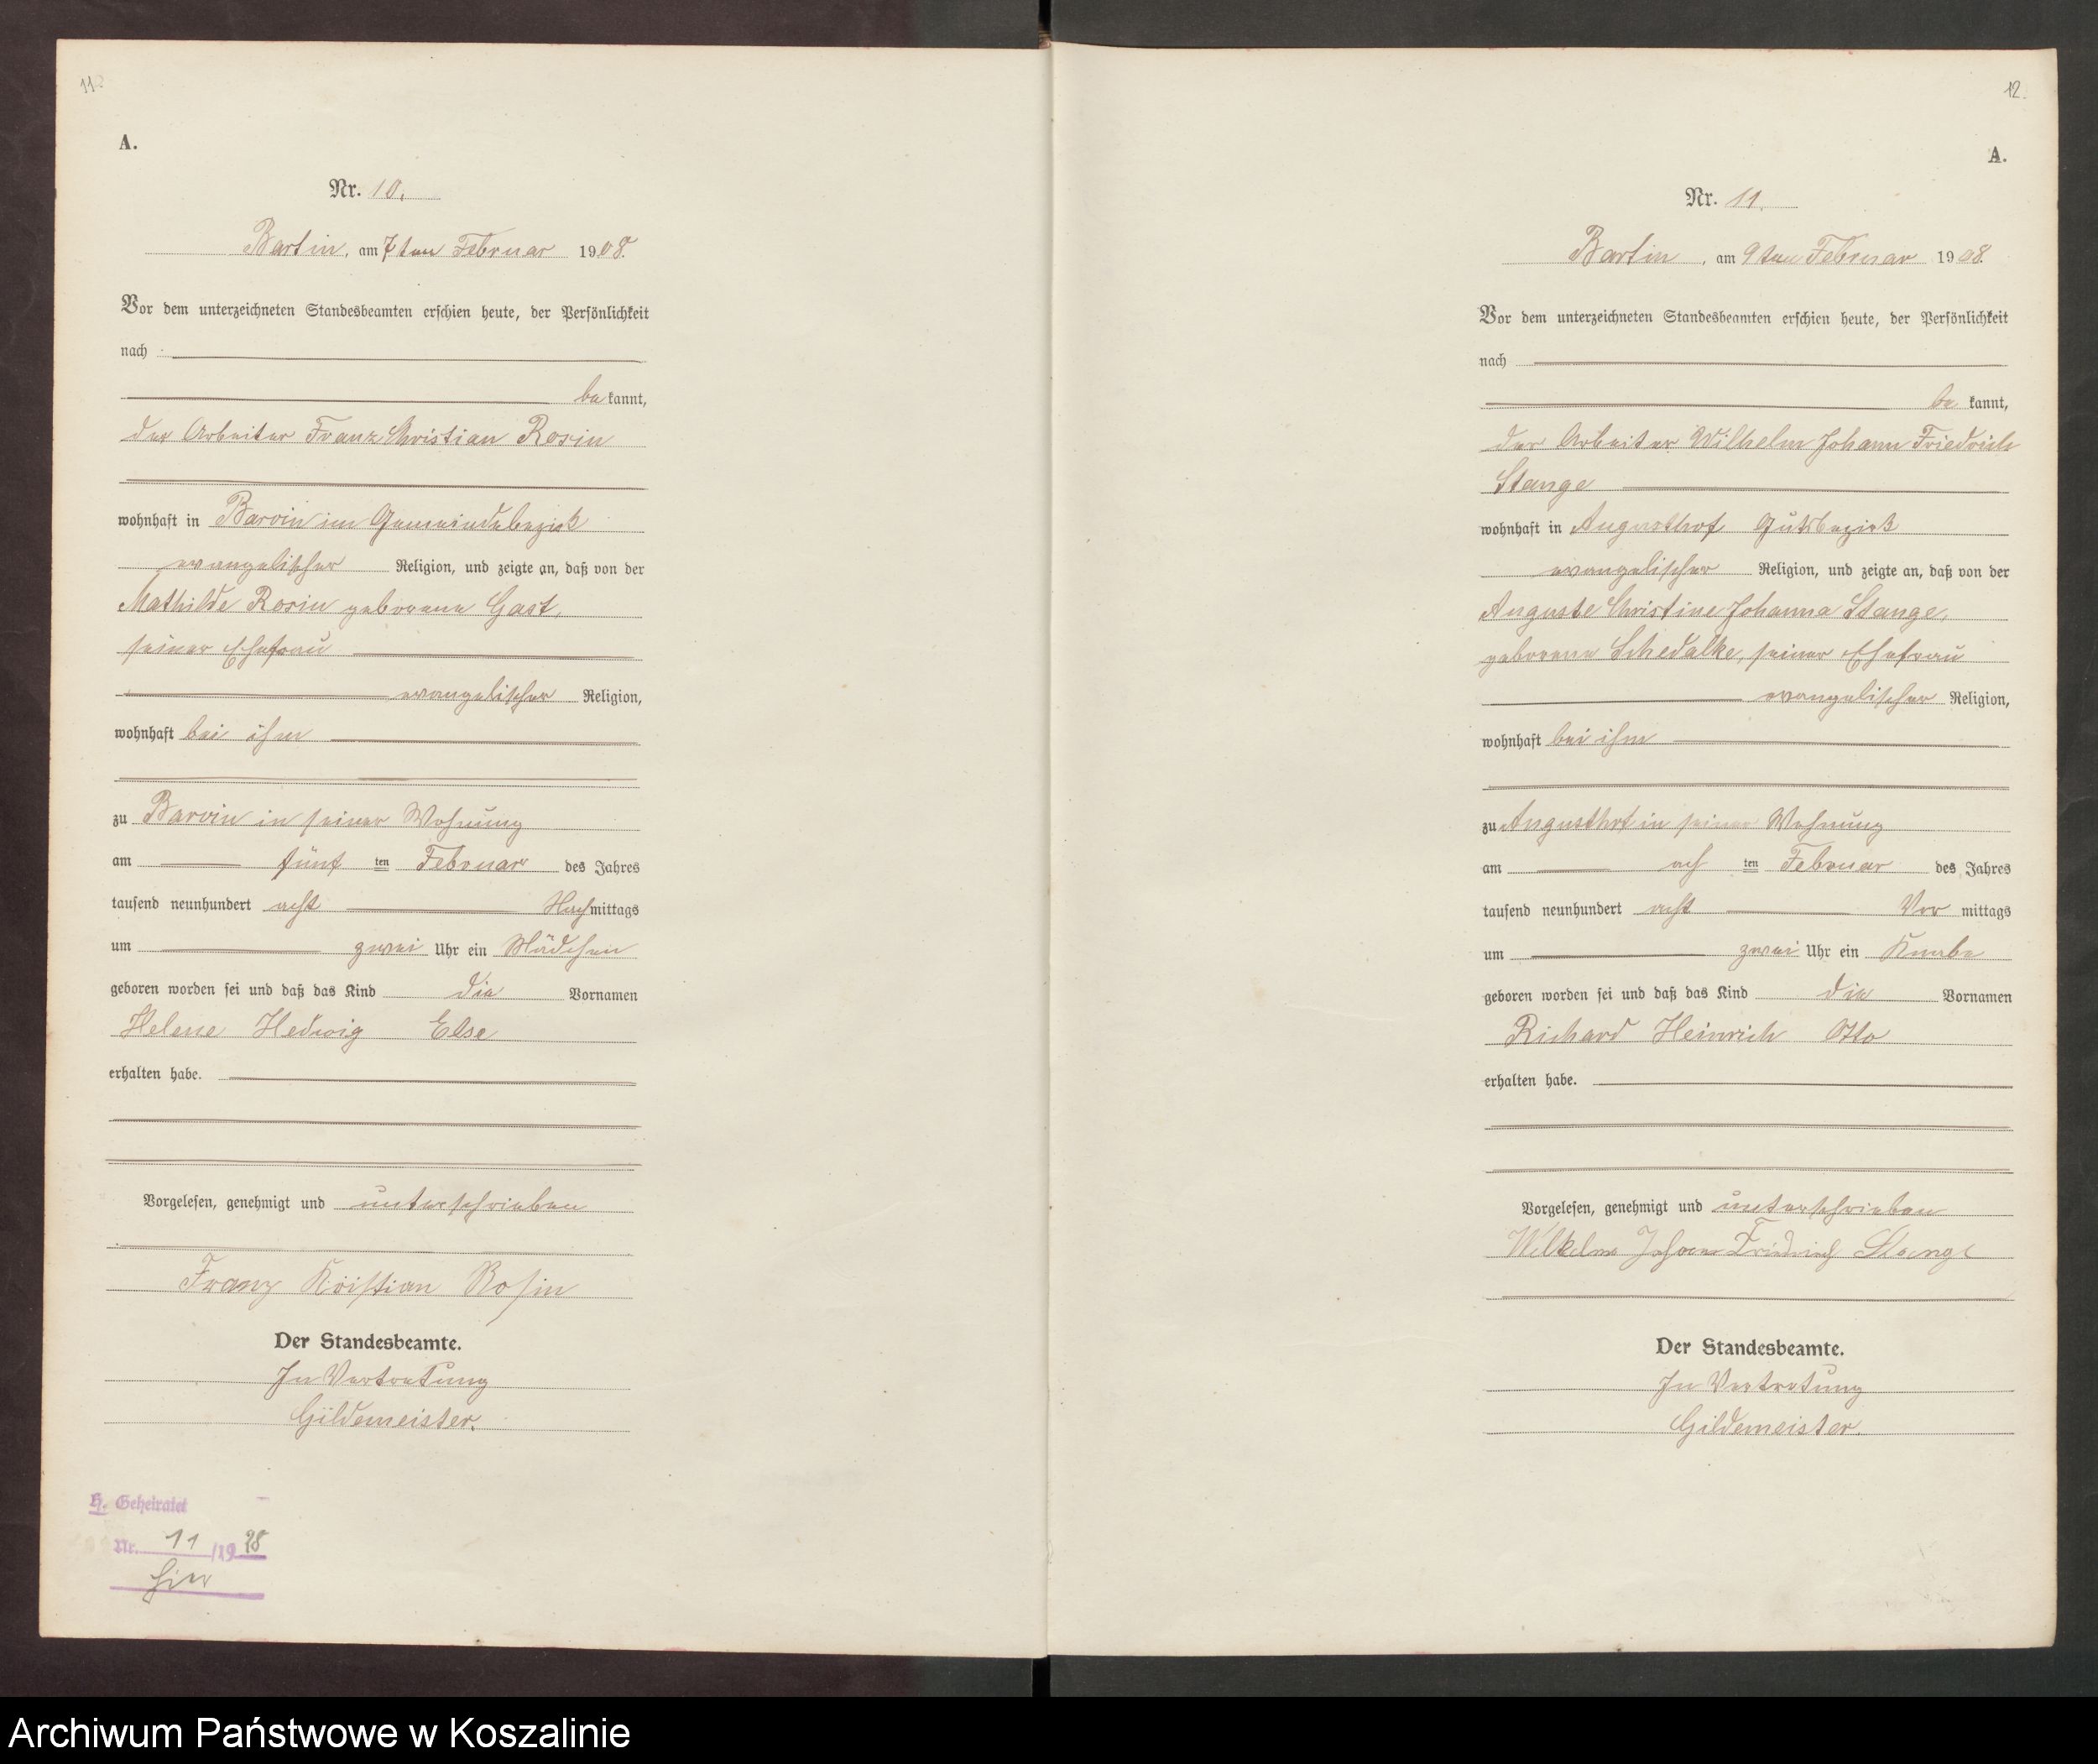 11
A.
Nr. 10.
Bartin, am 7ten Februar 1908.
Vor dem unterzeichneten Standesbeamten erschien heute, der Persönlichkeit
nach
be kannt,
der Arbeiter Franz Christian Rosin
wohnhaft in Barvin im Gemeindebezirk
evangelischer Religion, und zeigte an, daß von der
Mathilde Rosin geborene Gast,
seiner Ehefrau
evangelischer Religion,
wohnhaft bei ihm
zu Barvin in seiner Wohnung
am fünf ten Februar des Jahres
tausend neunhundert acht Nachmittags
um zwei Uhr ein Mädchen
geboren worden sei und daß das Kind die Vornamen
Helene Hedwig Else
erhalten habe.
Vorgelesen, genehmigt und unterschrieben
Franz Kristian Rosin
Der Standesbeamte.
In Vertretung
Gildemeister.
H. Geheiratet
Nr. 11 /1928
hier
12.
A.
Nr. 11.
Bartin, am 9ten Februar 1908.
Vor dem unterzeichneten Standesbeamten erschien heute, der Persönlichkeit
nach
be kannt,
der Arbeiter Wilhelm Johann Friedrich
Stange
wohnhaft in Augusthof Gutsbezirk
evangelischer Religion, und zeigte an, daß von der
Auguste Christine Johanna Stange,
geborene Schedalke, seiner Ehefrau
evangelischer Religion,
wohnhaft bei ihm
zu Augusthof in seiner Wohnung
am ach ten Februar des Jahres
tausend neunhundert acht Vor mittags
um zwei Uhr ein Knabe
geboren worden sei und daß das Kind die Vornamen
Richard Heinrich Otto
erhalten habe.
Vorgelesen, genehmigt und unterschrieben
Wilhelm Johann Friedrich Stange
Der Standesbeamte.
In Vertretung
Gildemeister.
Archiwum Państwowe w Koszalinie